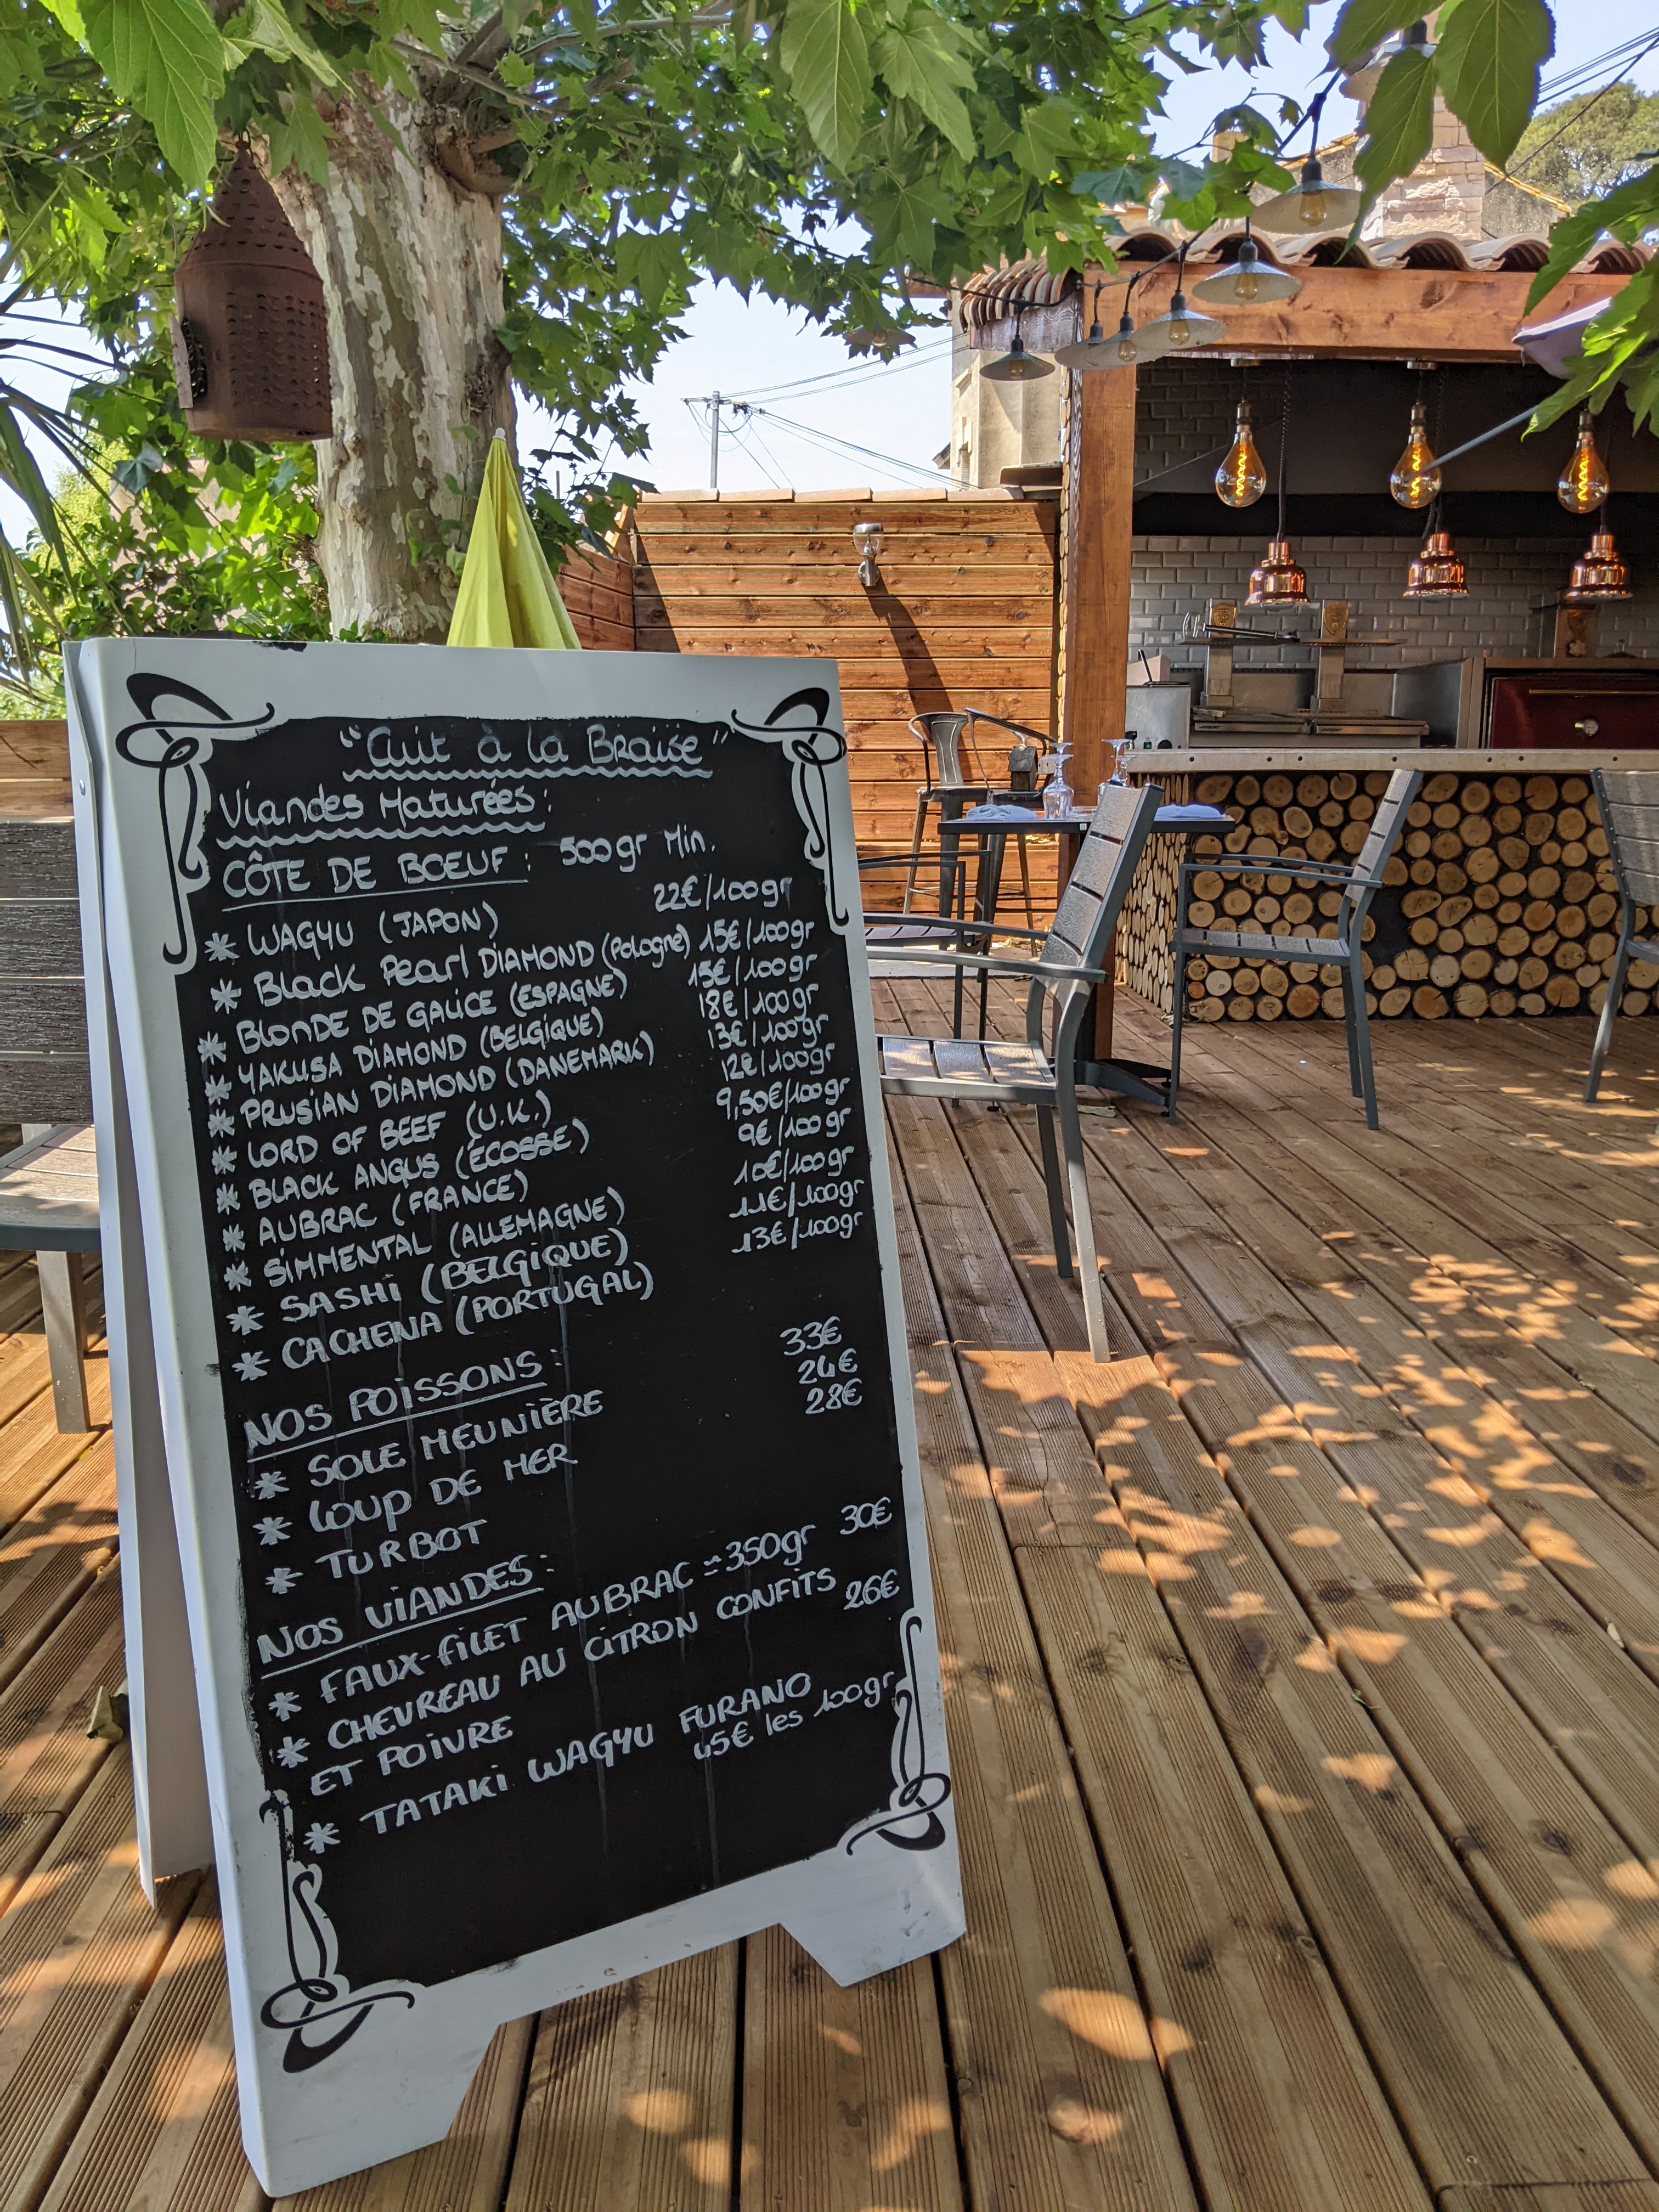 "Cuit à la Braise"
Viandes Maturées:
CÔTE DE BOEUF : 500gr Min.
* WAGYU (JAPON) 22€/100gr
* Black Pearl DIAMOND (Pologne) 15€/100gr
* Blonde DE GALICE (ESPAGNE) 15€/100gr
* YAKUSA DIAMOND (BELGIQUE) 18€/100gr
* PRUSIAN DIAMOND (DANEMARK) 13€/100gr
* LORD OF BEEF (U.K.) 12€/100gr
* BLACK ANGUS (ÉCOSSE) 9,50€/100gr
* AUBRAC (FRANCE) 9€/100gr
* SIMMENTAL (ALLEMAGNE) 10€/100gr
* SASHI (BELGIQUE) 11€/100gr
* CACHENA (PORTUGAL) 13€/100gr
NOS POISSONS :
* SOLE MEUNIÈRE 33€
* LOUP DE MER 24€
* TURBOT 28€
NOS VIANDES :
* FAUX-FILET AUBRAC ≃350gr 30€
* CHEVREAU AU CITRON CONFITS 26€
ET POIVRE
* TATAKI WAGYU FURANO
45€ les 100gr